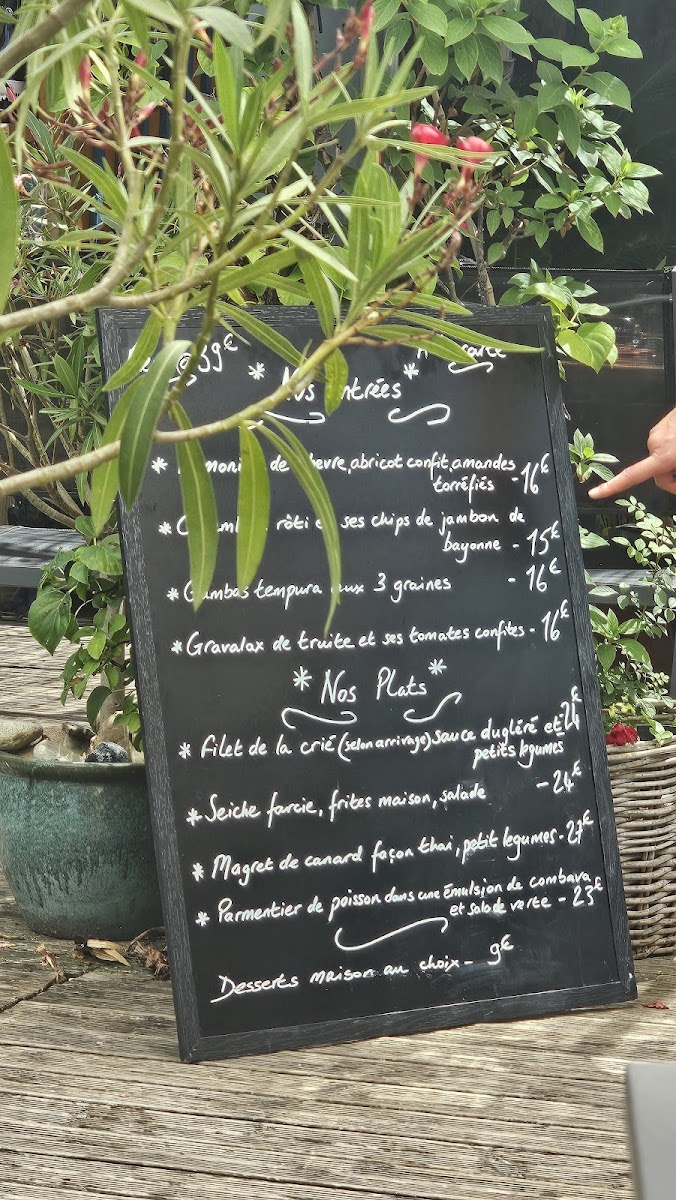 39€
carte
* Nos entrées *
* de chèvre, abricot confit, amandes
torréfiés - 16€
* rôti et ses chips de jambon de
bayonne - 15€
* Gambas tempura aux 3 graines - 16€
* Gravalax de truite et ses tomates confites - 16€
* Nos Plats *
* Filet de la crié (selon arrivage) sauce dugléré et - 24€
petits legumes
* Seiche farcie, frites maison, salade - 24€
* Magret de canard façon thai, petit legumes - 27€
* Parmentier de poisson dans une émulsion de combava
et salade verte - 23€
Desserts maison au choix - 9€